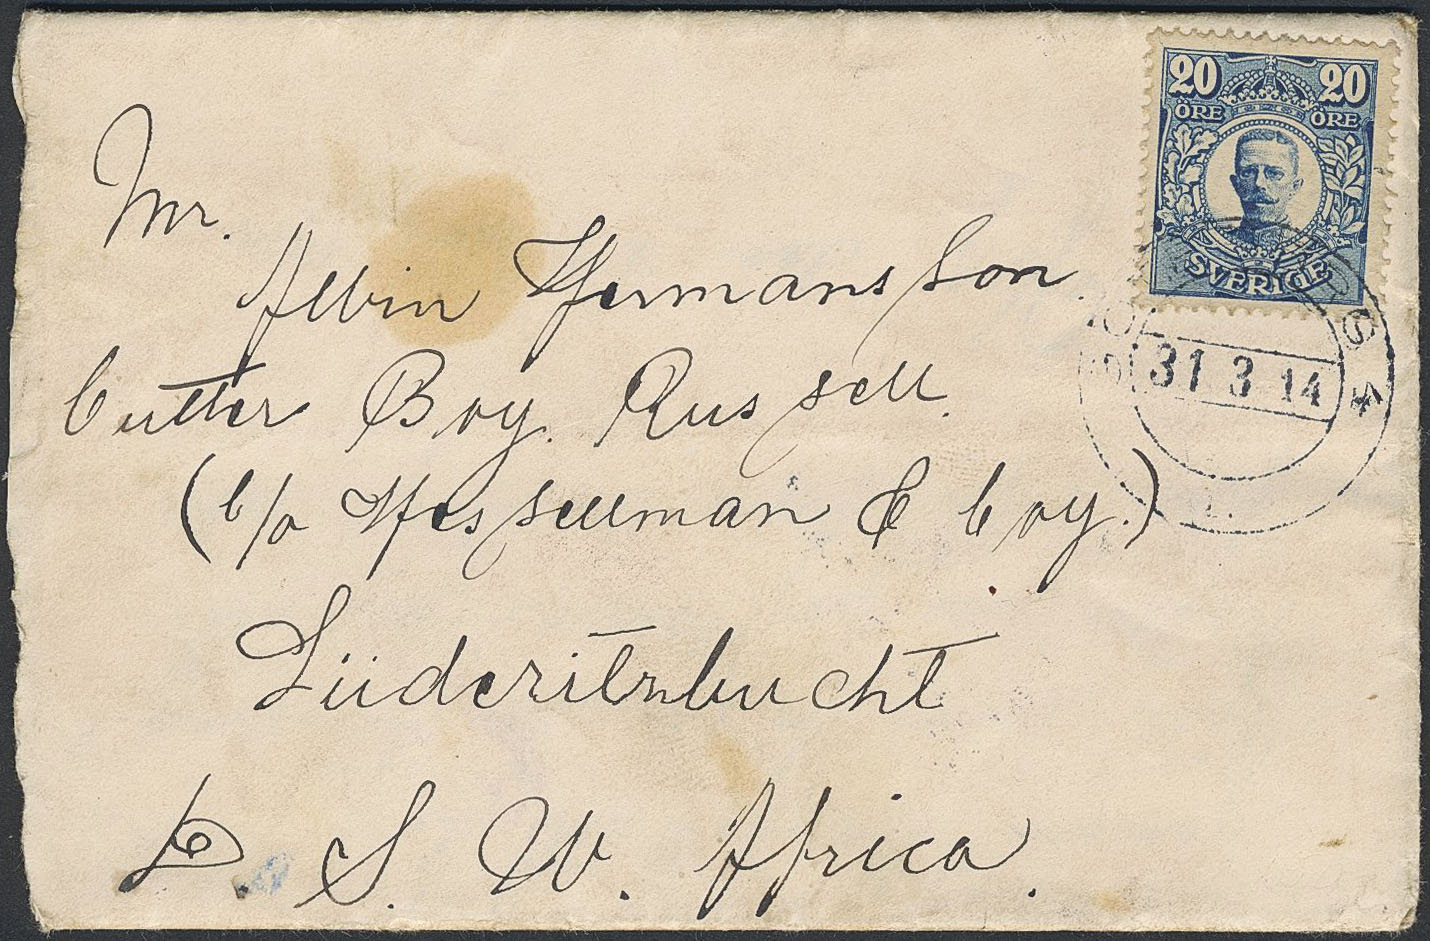 20 20
ÖRE ÖRE
SVERIGE
31 3 14
Mr.
Albin Hermansson.
Cutter Boy. Russell.
(C/o Hessellman & Coy.)
Lüderitzbucht
D. S. W. Africa.